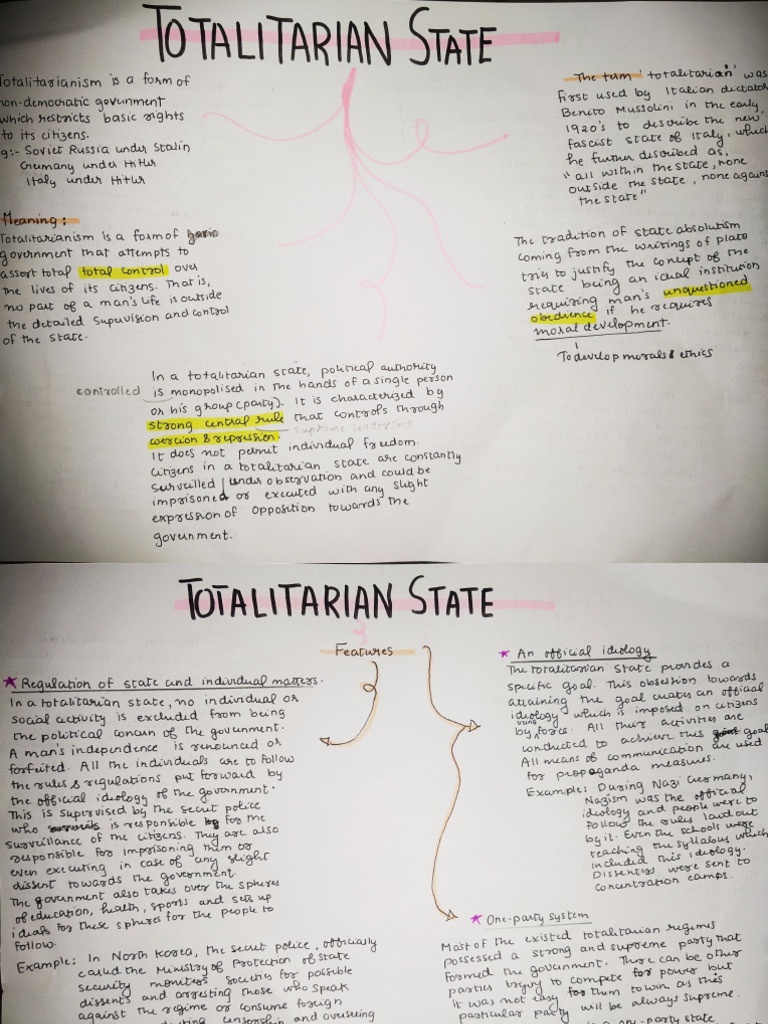 TOTALITARIAN STATE
Totalitarianism is a form of
non-democratic government
which restricts basic rights
to its citizens.
g:- Soviet Russia under Stalin
Germany under Hitler
Italy under Hitler
Meaning:
Totalitarianism is a form of
government that attempts to
assert total total control over
the lives of its citizens. That is,
no part of a man's life is outside
the detailed supervision and control
of the state.
The term 'totalitarian' was
first used by Italian dictator
Benito Mussolini in the early
1920's to describe the new
fascist state of Italy, which
he further described as,
"all within the state, none
outside the state, none against
the state"
The tradition of state absolutism
coming from the writings of plato
tries to justify the concept of the
state being an ideal institution
requiring man's unquestioned
obedience if he requires
moral development.
To develop morals & ethics
In a totalitarian state, political authority
controlled is monopolised in the hands of a single person
or his group (party). It is characterized by
strong central rule that controls through
supreme leadership
coercion & repression.
It does not permit individual freedom.
Citizens in a totalitarian state are constantly
surveilled / under observation and could be
imprisoned or executed with any slight
expression of opposition towards the
government.
TOTALITARIAN STATE
Features
★ Regulation of state and individual matters.
In a totalitarian state, no individual or
social activity is excluded from being
the political concern of the government.
A man's independence is renounced or
forfeited. All the individuals are to follow
the rules & regulations put forward by
the official ideology of the government.
This is supervised by the secret police
who is responsible for the
surveillance of the citizens. They are also
responsible for imprisoning them or
even executing in case of any slight
dissent towards the government
The government also takes over the spheres
of education, health, sports and sets up
ideals for these spheres for the people to
follow.
Example: In North Korea, the secret police, officially
called the Ministry of Protection of State
security monitors societies for possible
dissents and arresting those who speak
against the regime or consume foreign
censorship and overseeing
★ An official ideology
The totalitarian state provides a
specific goal. This obsession towards
attaining the goal creates an official
ideology which is imposed on citizens
by using force. All their activities are
conducted to achieve this goal
All means of communication are used
for propaganda measures.
Example: During Nazi Germany,
Nazism was the official
ideology and people were to
follow the rules laid out
by it. Even the schools were
teaching the syllabus which
included this ideology.
Dissenters were sent to
concentration camps.
★ One-party system
Most of the existed totalitarian regimes
possessed a strong and supreme party that
formed the government. There can be other
parties trying to compete for power but
it was not easy for them to win as this
particular party will be always supreme.
one-party state